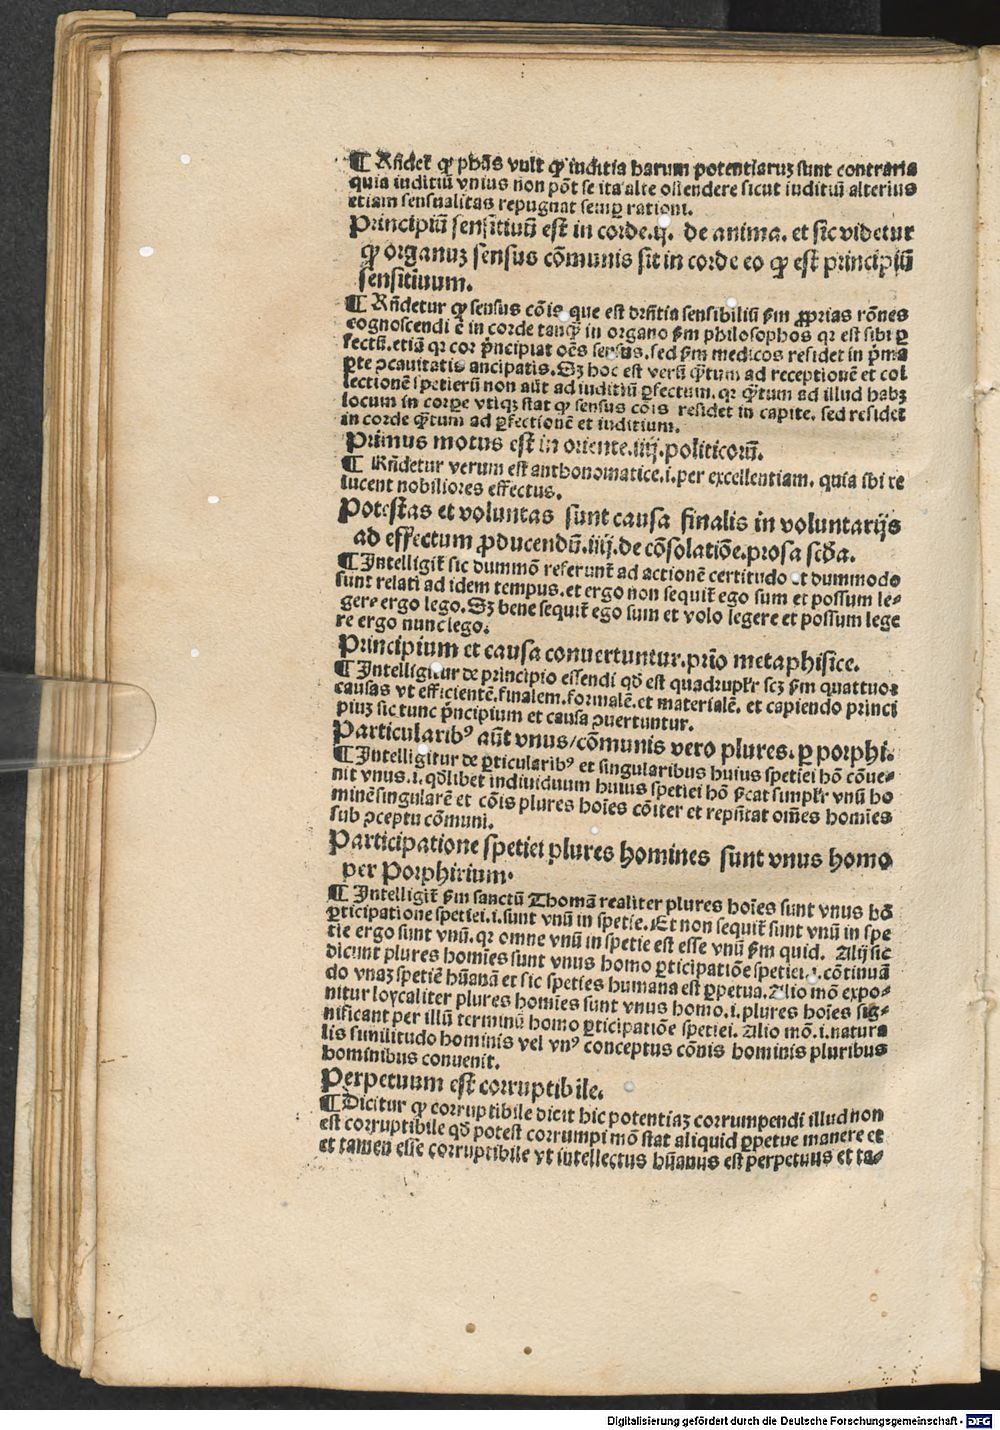 ¶ Rñdet̄ qꝫ ph̄us vult qꝫ iuditia harum potentiaruꝫ sunt contraria
quia iuditiū vnius non põt se ita alte ostendere sicut iuditiū alterius
etiam sensualitas repugnat semꝑ rationi.
Principiū sensitiuū est in corde.ij. de anima. et sic videtur
qꝫ organuꝫ sensus cōmunis sit in corde eo qꝫ est principiū
sensitiuum.
¶ Rñdetur qꝫ sensus cōis que est drñtia sensibiliū ẜm ꝓprias rōnes
cognoscendi ē in corde tanqꝫ in organo ẜm philosophos qꝛ est sibi ꝑ
fectū.etiā qꝛ cor pͥncipiat oēs sensus.sed ẜm medicos residet in pͥma
ꝑte ꝯcauitatis ancipatis.Sꝫ hoc est verū qͣtum ad receptionē et col
lectionē spetierū non aūt ad iuditiū ꝑfectum.qꝛ qͣtum ad illud habꝫ
locum in corpe vtiqꝫ stat qꝫ sensus cōis residet in capite. sed residet
in corde qͣtum ad ꝑfectionē et iuditium.
Primus motus est in oriente.iiij.politicorū.
¶ Rñdetur verum est anthonomatice.i.per excellentiam. quia ibi re
lucent nobiliores effectus.
Potestas et voluntas sunt causa finalis in voluntarijs
ad effectum ꝓducendū.iiij.de cōsolatiōe.prosa scḋa.
¶ Intelligit̄ sic dummō referunt̄ ad actionē certitudo et dummodo
sunt relati ad idem tempus.et ergo non sequit̄ ego sum et possum le⸗
gere ergo lego.Sꝫ bene sequit̄ ego sum et volo legere et possum lege
re ergo nunc lego.
Principium et causa conuertuntur.prīo metaphisice.
¶ Intelligitur de principio essendi qḋ est quadruplr̄ scꝫ ẜm quattuor
causas vt efficientē.finalem.formalē.et materialē. et capiendo princi
piuꝫ sic tunc pͥncipium et causa ꝯuertuntur.
Particularibꝰ aūt vnus/cōmunis vero plures.ꝑ porphi.
¶ Intelligitur de ꝑticularibꝰ et singularibus huius spetiei hō cōue⸗
nit vnus.i.qḋlibet indiuiduum huius spetiei hō ẜcat simplr̄ vnū ho
minē singularē et cōis plures hoīes cōiter et repn̄tat om̄es homīes
sub ꝯceptu cōmuni.
Participatione spetiei plures homines sunt vnus homo
per Porphirium.
¶ Intelligit̄ ẜm sanctū Thomā realiter plures hoīes sunt vnus hō
ꝑticipatione spetiei.i.sunt vnū in spetie.Et non sequit̄ sunt vnū in spe
tie ergo sunt vnū.qꝛ omne vnū in spetie est esse vnū ẜm quid. Alij sic
dicunt plures homīes sunt vnus homo ꝑticipatiōe spetiei.i.cōtinuā
do vnaꝫ spetiē hūanā et sic speties humana est ꝑpetua.Alio mō expo⸗
nitur loycaliter plures homīes sunt vnus homo.i.plures hoīes sig⸗
nificant per illū terminū homo ꝑticipatiōe spetiei. Alio mō.i.natura
lis similitudo hominis vel vnꝰ conceptus cōnis hominis pluribus
hominibus conuenit.
Perpetuum est corruptibile.
¶ Dicitur qꝫ corruptibile dicit hic potentiaꝫ corrumpendi illud non
est corruptibile qḋ potest corrumpi mō stat aliquid ꝑpetue manere et
et tamen esse corruptibile vt intellectus hūanus est perpetuus et ta⸗
Digitalisierung gefördert durch die Deutsche Forschungsgemeinschaft - DFG